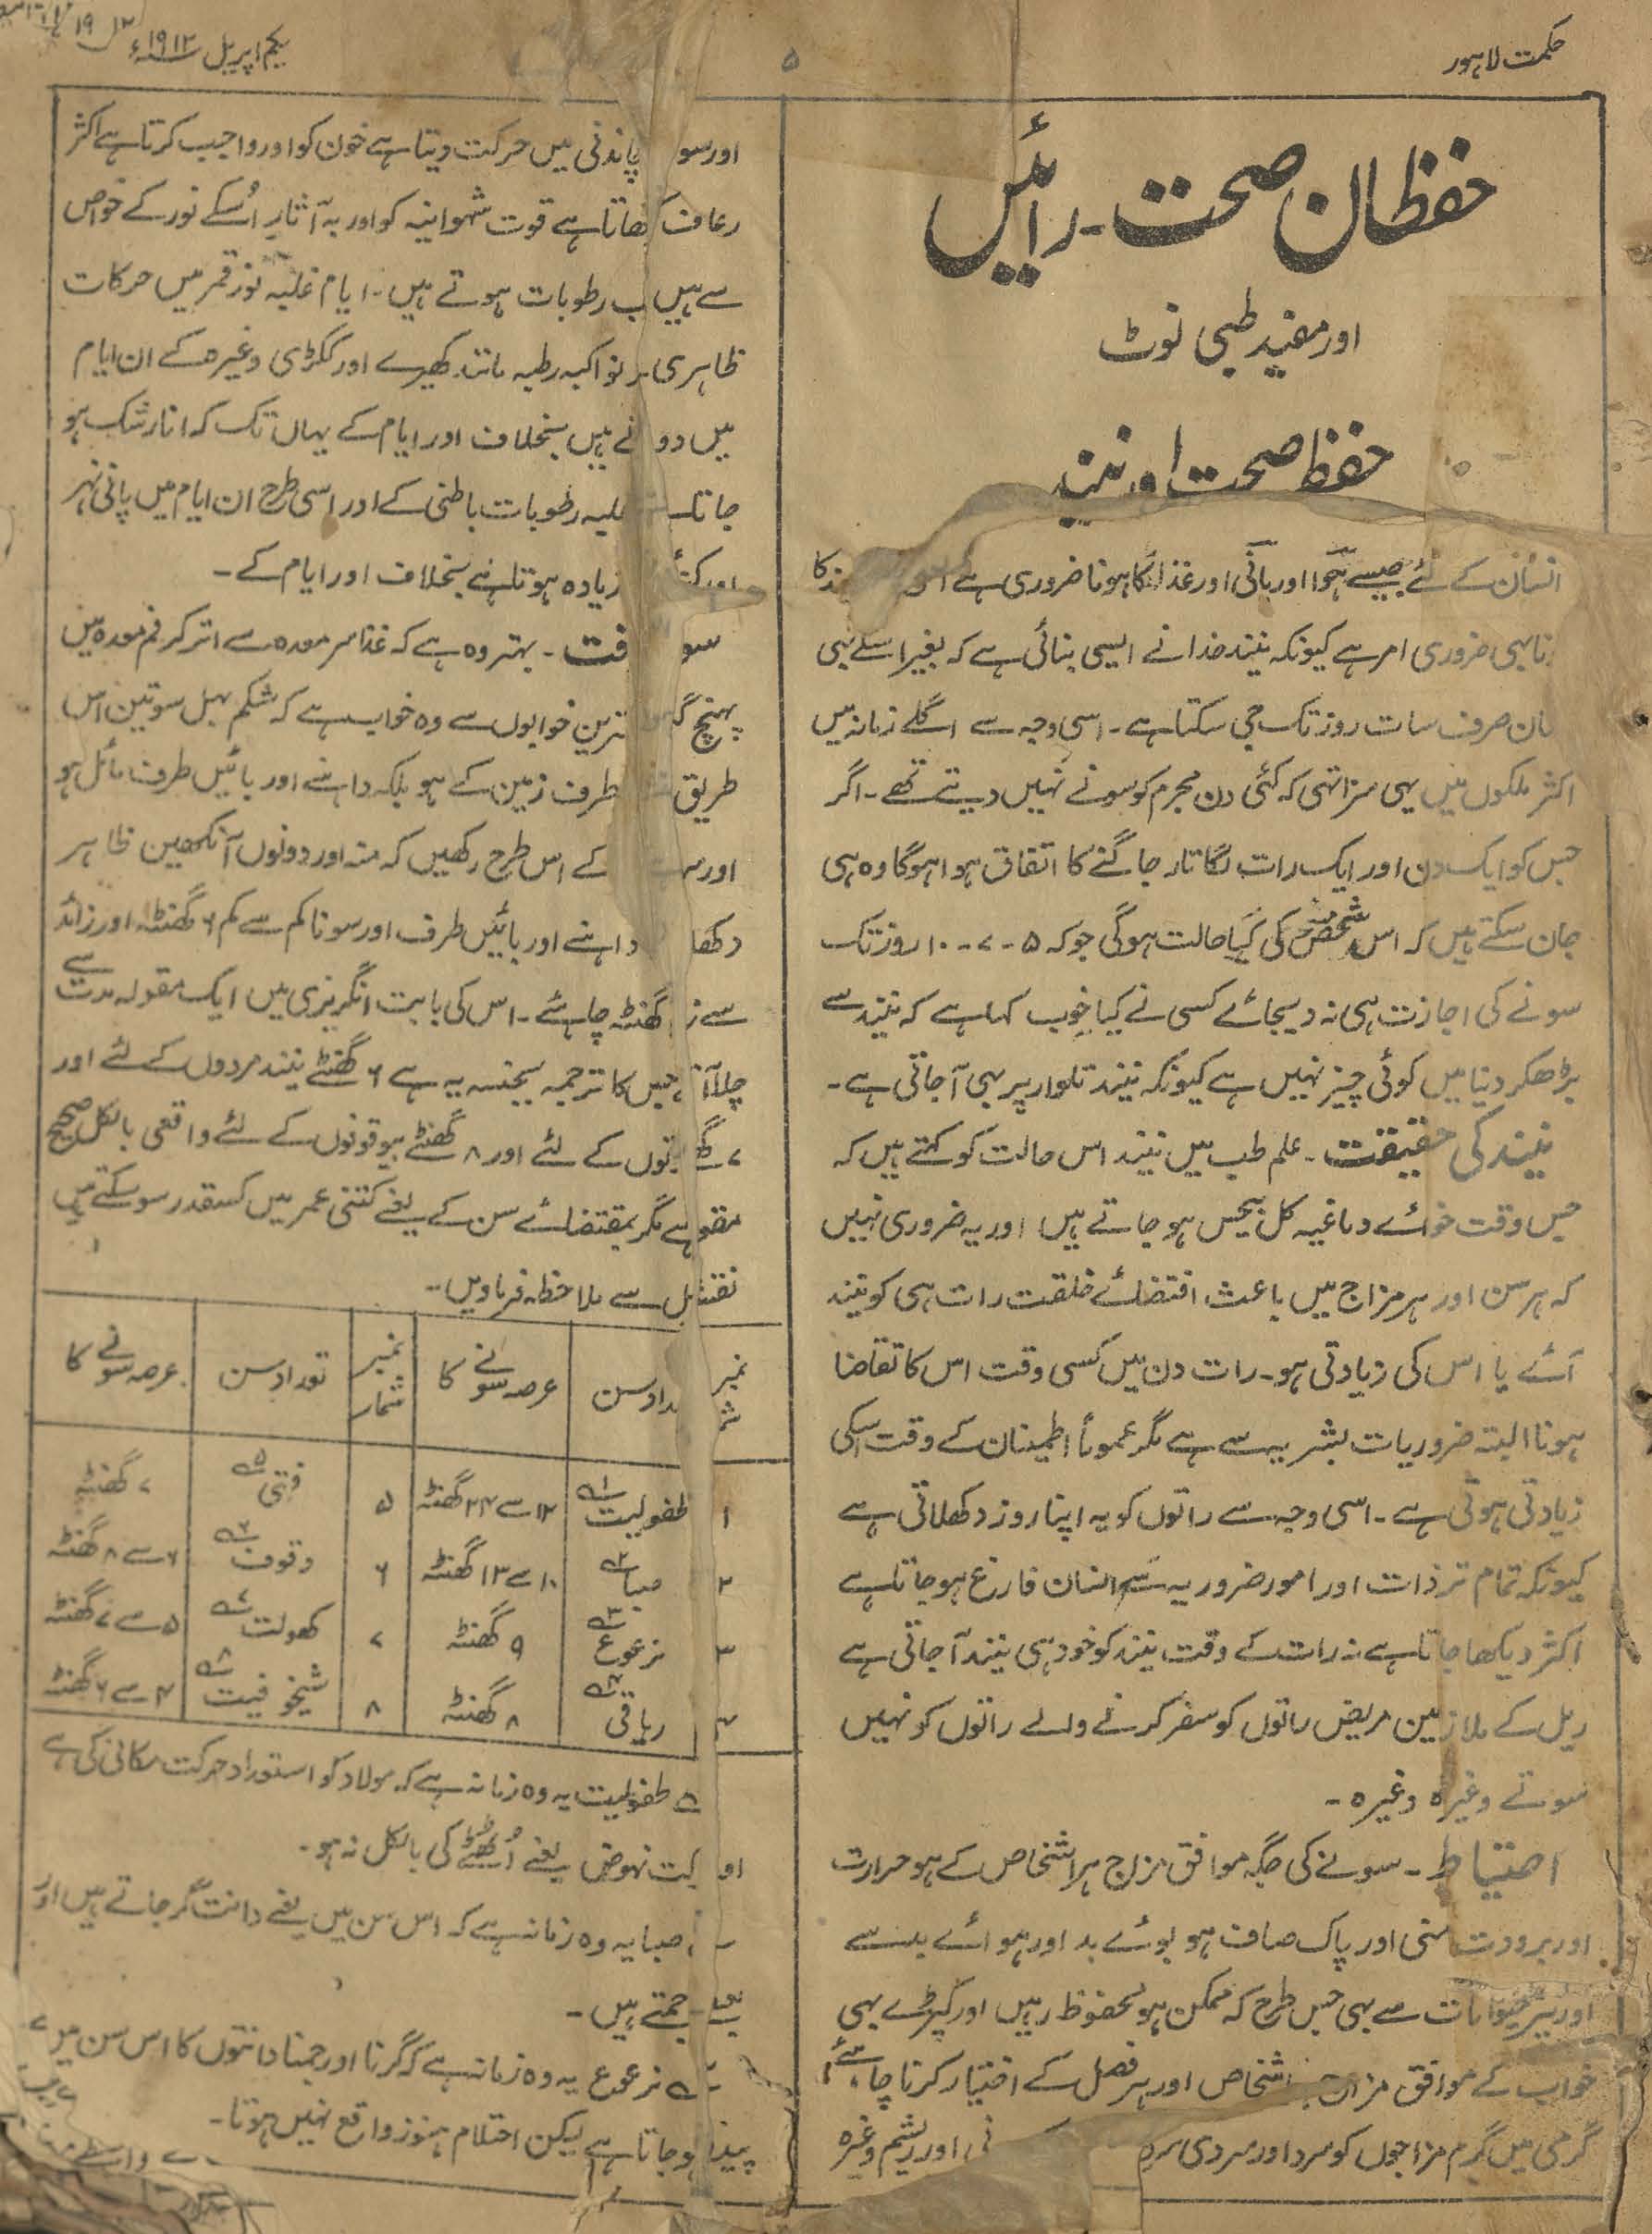 حکمت لاہور
۵
یکم اپریل ۱۹۱۲ء
حفظان صحت ۔ رائیں
اور مفید طبی نوٹ
حفظ صحت اور نیند
انسان کے لئے جیسے ہوا اور پانی اور غذا کا ہونا ضروری ہے
نا بہی ضروری امر ہے کیونکہ نیند خدا نے ایسی بنائی ہے کہ بغیر اسکے بہی
صرف سات روز تک جی سکتا ہے ۔ اسی وجہ سے اگلے زمانہ میں
اکثر ملکوں میں یہی سزا تہی کہ کئی دن مجرم کو سونے نہیں دیتے تھے ۔ اگر
جس کو ایک دن اور ایک رات لگاتار جاگنے کا اتفاق ہوا ہوگا وہ ہی
جان سکتے ہیں کہ اس شخص کی کیا حالت ہوگی جو کہ ۵ ۔ ۷ ۔ ۱۰ روز تک
سونے کی اجازت ہی نہ دیجائے کسی نے کیا خوب کہا ہے کہ نیند سے
بڑھکر دنیا میں کوئی چیز نہیں ہے کیونکہ نیند تلوار پر بہی آجاتی ہے ۔
نیند کی حقیقت ۔ علم طب میں نیند اس حالت کو کہتے ہیں کہ
جس وقت قوائے دماغیہ کل بیحس ہو جاتے ہیں اور یہ ضروری نہیں
کہ ہر سن اور ہر مزاج میں باعث اقتضائے خلقت رات ہی کو نیند
آئے یا اس کی زیادتی ہو ۔ رات دن میں کسی وقت اس کا تقاضا
ہونا البتہ ضروریات بشریہ سے ہے مگر عموماً اطمینان کے وقت اسکی
زیادتی ہوتی ہے ۔ اسی وجہ سے راتوں کو یہ اپنا روز دکھلاتی ہے
کیونکہ تمام ترددات اور امور ضروریہ سے انسان فارغ ہو جاتا ہے
اکثر دیکھا جاتا ہے نہ رات کے وقت نیند کو خود ہی نیند آجاتی ہے
ریل کے ملازمین مریض راتوں کو سفر کرنے والے راتوں کو نہیں
سوتے وغیرہ وغیرہ ۔
احتیاط ۔ سونے کی جگہ موافق مزاج ہر اشخاص کے ہو حرارت
اور برودت میں اور پاک صاف ہو بوئے بد اور ہوائے بد سے
اور نیز حیوانات سے بہی جس طرح کہ ممکن ہو محفوظ رہیں اور کپڑے بہی
خواب کے موافق مزاج اشخاص اور ہر فصل کے اختیار کرنا چاہئے
گرمی میں گرم مزاجوں کو سرد اور سردی اور ریشم وغیرہ
اور سو چاندنی میں حرکت دیتا ہے خون کو اور واجب کرتا ہے اکثر
رعاف قوت شہوانیہ کو اور یہ آثار اُسکے نور کے خواص
سے ہیں رطوبات ہوتے ہیں ۔ ایام غلبہ نور قمر میں حرکات
ظاہری فواکہ رطبہ مانند کھیرے اور ککڑی وغیرہ کے ان ایام
میں ہیں بخلاف اور ایام کے یہاں تک کہ انار شک ہو
جاتا غلبہ رطوبات باطنی کے اور اسی طرح ان ایام میں پانی نہر
اور زیادہ ہوتا ہے بخلاف اور ایام کے ۔
سو وقت ۔ بہتر وہ ہے کہ غذا سر معدہ سے اتر کر فم معدہ میں
پہنچ ترین خوابوں سے وہ خواب ہے کہ شکم سوئیں اس
طریق طرف زمین کے ہو بلکہ داہنے اور بائیں طرف مائل ہو
اور کے اس طرح رکھیں کہ منہ اور دونوں آنکھیں ظاہر
دکھا داہنے اور بائیں طرف اور سونا کم سے کم ۶ گھنٹہ اور زائد
سے گھنٹہ چاہئے ۔ اس کی بابت انگریزی میں ایک مقولہ مدت سے
چلا آ جس کا ترجمہ بجنسہ یہ ہے ۶ گھنٹے نیند مردوں کے لئے اور
۷ گھ توں کے لئے اور ۸ گھنٹے بیوقوفوں کے لئے واقعی بالکل صحیح
مقو ہے مگر بمقتضائے سن کے یعنے کتنی عمر میں کسقدر سو سکتے ہیں
نقشہ سے ملاحظہ فرماویں ۔
نمبر شم تعداد سن عرصہ سونے کا نمبر شمار تعداد سن عرصہ سونے کا
۱ طفولیت ۱۲ سے ۲۴ گھنٹہ ۵ فتی ۷ گھنٹہ
۲ صبا ۱۰ سے ۱۳ گھنٹہ ۶ وقوف ۶ سے ۸ گھنٹہ
۳ ترعوع ۹ گھنٹہ ۷ کھولت ۵ سے ۷ گھنٹہ
۴ رہاقی ۸ گھنٹہ ۸ شیخوفیت ۴ سے ۶ گھنٹہ
طفولیت یہ وہ زمانہ ہے کہ مولاد کو استعداد حرکت مکانی کی ہے
او نہوض یعنے اُٹھنے کی بالکل نہ ہو ۔
صبا یہ وہ زمانہ ہے کہ اس سن میں یعنے دانت گر جاتے ہیں اور
جمتے ہیں ۔
ترعوع یہ وہ زمانہ ہے کہ گرنا اور جمنا دانتوں کا اس سن میں
ہو جاتا ہے لیکن احتلام ہنوز واقع نہیں ہوتا ۔